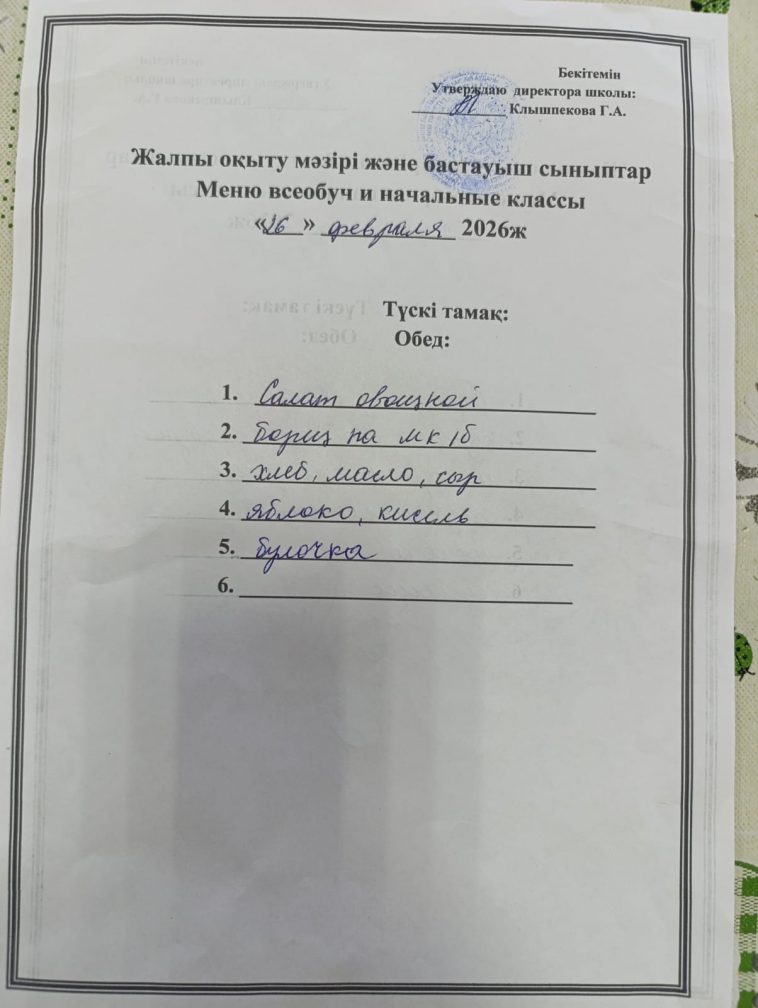 Бекітемін
Утверждаю директора школы:
Клышпекова Г.А.
Жалпы оқыту мәзірі және бастауыш сыныптар
Меню всеобуч и начальные классы
«26» февраля 2026ж
Түскі тамақ:
Обед:
1. Салат овощной
2. борщ на мк/б
3. хлеб, масло, сыр
4. яблоко, кисель
5. булочка
6.